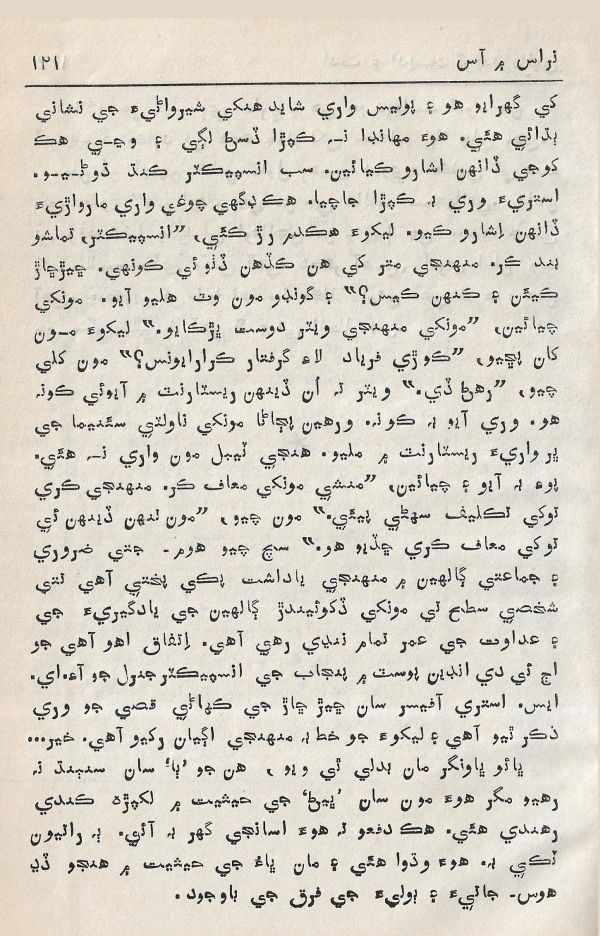 نراس ۾ آس
١٢١
کي گهرايو هو ۽ پوليس واري شايد هنکي شيرواڻيءَ جي نشاني
ٻڌائي هئي. هوءَ مهاندا نہ ڪپڙا ڏسڻ لڳي ۽ وڃي هڪ
کوجي ڏانهن اشارو ڪيائين. سب انسپيڪٽر ڪنڌ ڌوڻيو.
استريءَ وري بہ ڪپڙا جاچيا. هڪ ڊگهي چوغي واري مارواڙيءَ
ڏانهن اِشارو ڪيو. ليکوءَ هڪدم رڙ ڪئي، ”انسپيڪٽر، تماشو
بند ڪر. منهنجي متر کي هن ڪڏهن ڏٺو ئي ڪونهي. ڇيڙڇاڙ
ڪيئن ۽ ڪنهن ڪيس؟“ ۽ گوندو مون وٽ هليو آيو. مونکي
چيائين، ”مونکي منهنجي ويٽر دوست ڀڙڪايو.“ ليکوءَ مون
کان پڇيو، ”ڪوڙي فرياد لاءِ گرفتار ڪرارايونس؟“ مون کلي
چيو، ”رهڻ ڏي.“ ويٽر تہ اُن ڏينهن ريسٽارنٽ ۾ آيوئي ڪونہ
هو. وري آيو بہ ڪونہ. ورهين پڄاڻا مونکي ناولٽي سئنيما جي
ڀرواريءَ ريسٽارنٽ ۾ مليو. هنجي ٽيبل مون واري نہ هئي.
پوءِ بہ آيو ۽ چيائين، ”منشي مونکي معاف ڪر. منهنجي ڪري
توکي تڪليف سهڻي پيئي.“ مون چيو، ”مون تنهن ڏينهن ئي
توکي معاف ڪري ڇڏيو هو.“ سچ چيو هوم۔ جتي ضروري
۽ جماعتي ڳالهين ۾ منهنجي ياداشت پڪي پختي آهي تتي
شخصي سطح تي مونکي ڏکوئيندڙ ڳالهين جي يادگيريءَ جي
۽ عداوت جي عمر تمام ننڍي رهي آهي. اِتفاق اهو آهي جو
اڄ ئي دي انڊين پوسٽ ۾ پنجاب جي انسپيڪٽر جنرل جو آءِ.اي.
ايس. استري آفيسر سان ڇيڙ ڇاڙ جي ڪهاڻي قصي جو وري
ذڪر ٿيو آهي ۽ ليکوءَ جو خط بہ منهنجي اڳيان رکيو آهي. خير...
ڀائو ڀاونگر مان بدلي ٿي ويو، هن جو ’ٻا‘ سان سنٻنڌ نہ
رهيو مگر هوءَ مون سان ’ڀيڻ‘ جي حيثيت ۾ لکپڙهه ڪندي
رهندي هئي. هڪ دفعو تہ هوءَ اسانجي گهر بہ آئي. ٻہ راتيون
ٽڪي بہ. هوءَ وڌوا هئي ۽ مان ڀاءُ جي حيثيت ۾ هنجو ڏڍ
هوس۔ جاتيءَ ۽ ٻوليءَ جي فرق جي باوجود.